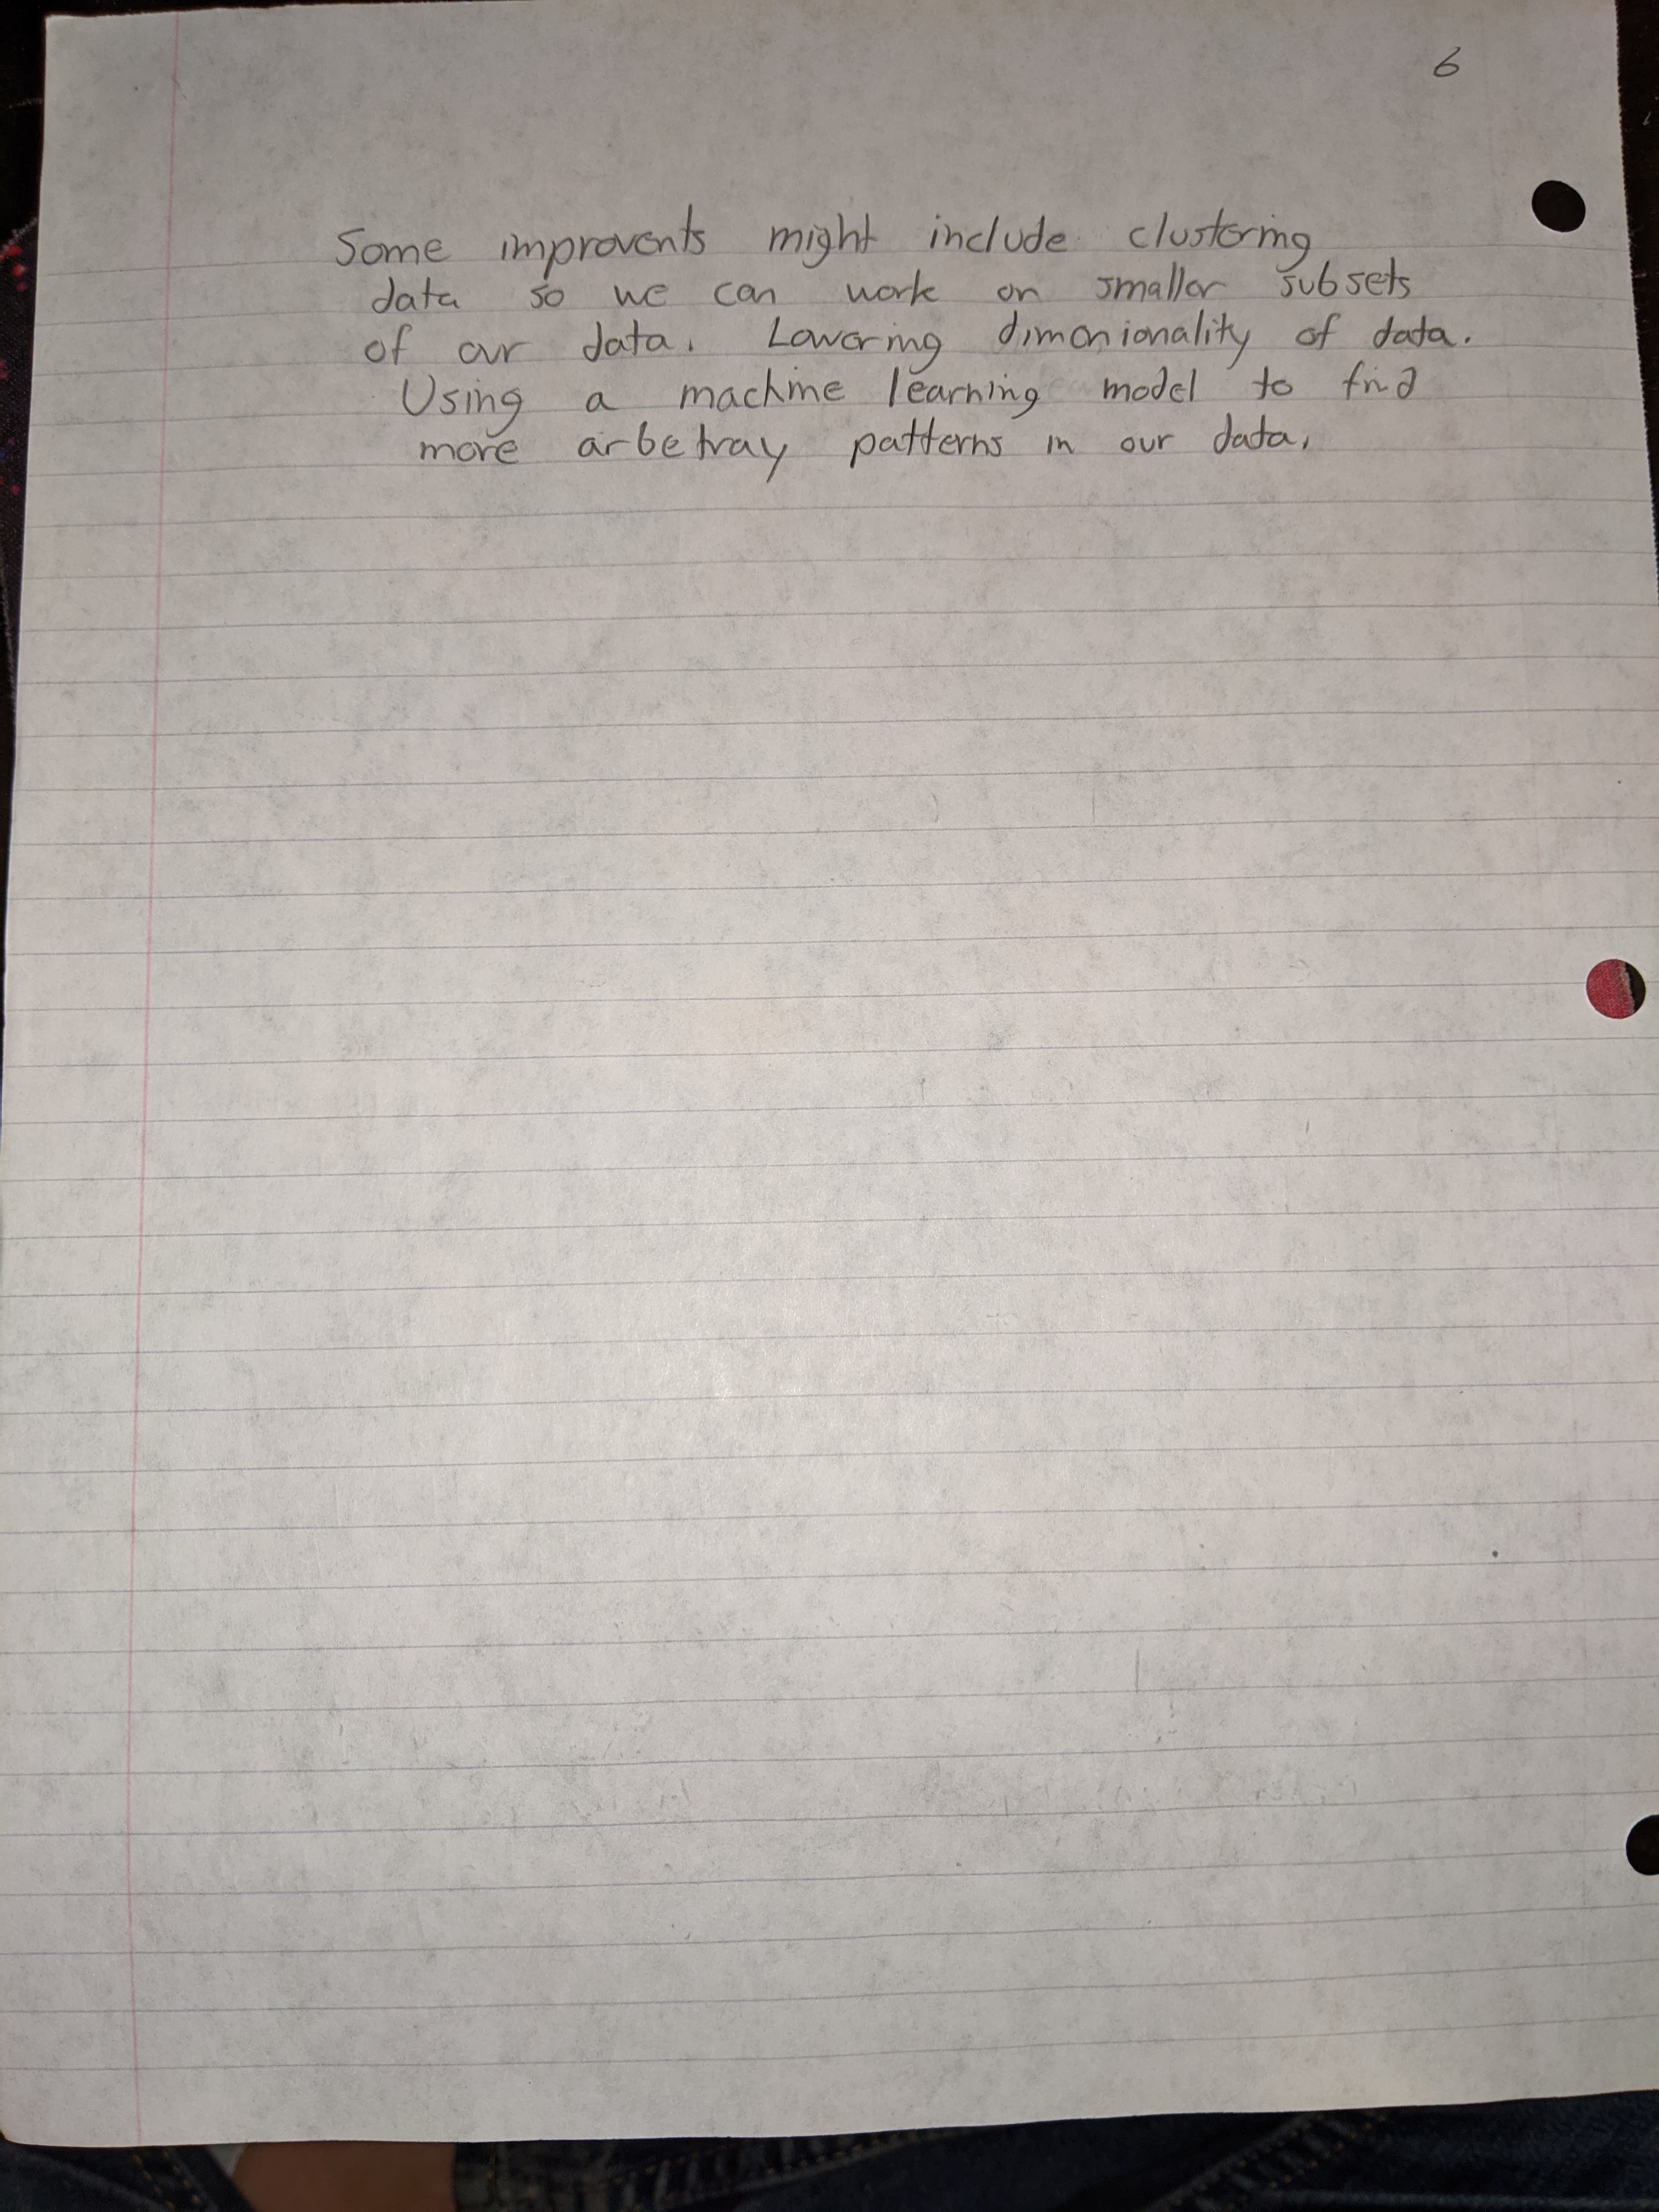 6
Some improvents might include clustering
data so we can work on smaller subsets
of our data. Lowering dimenionality of data.
Using a machine learning model to find
more arbetray patterns in our data.